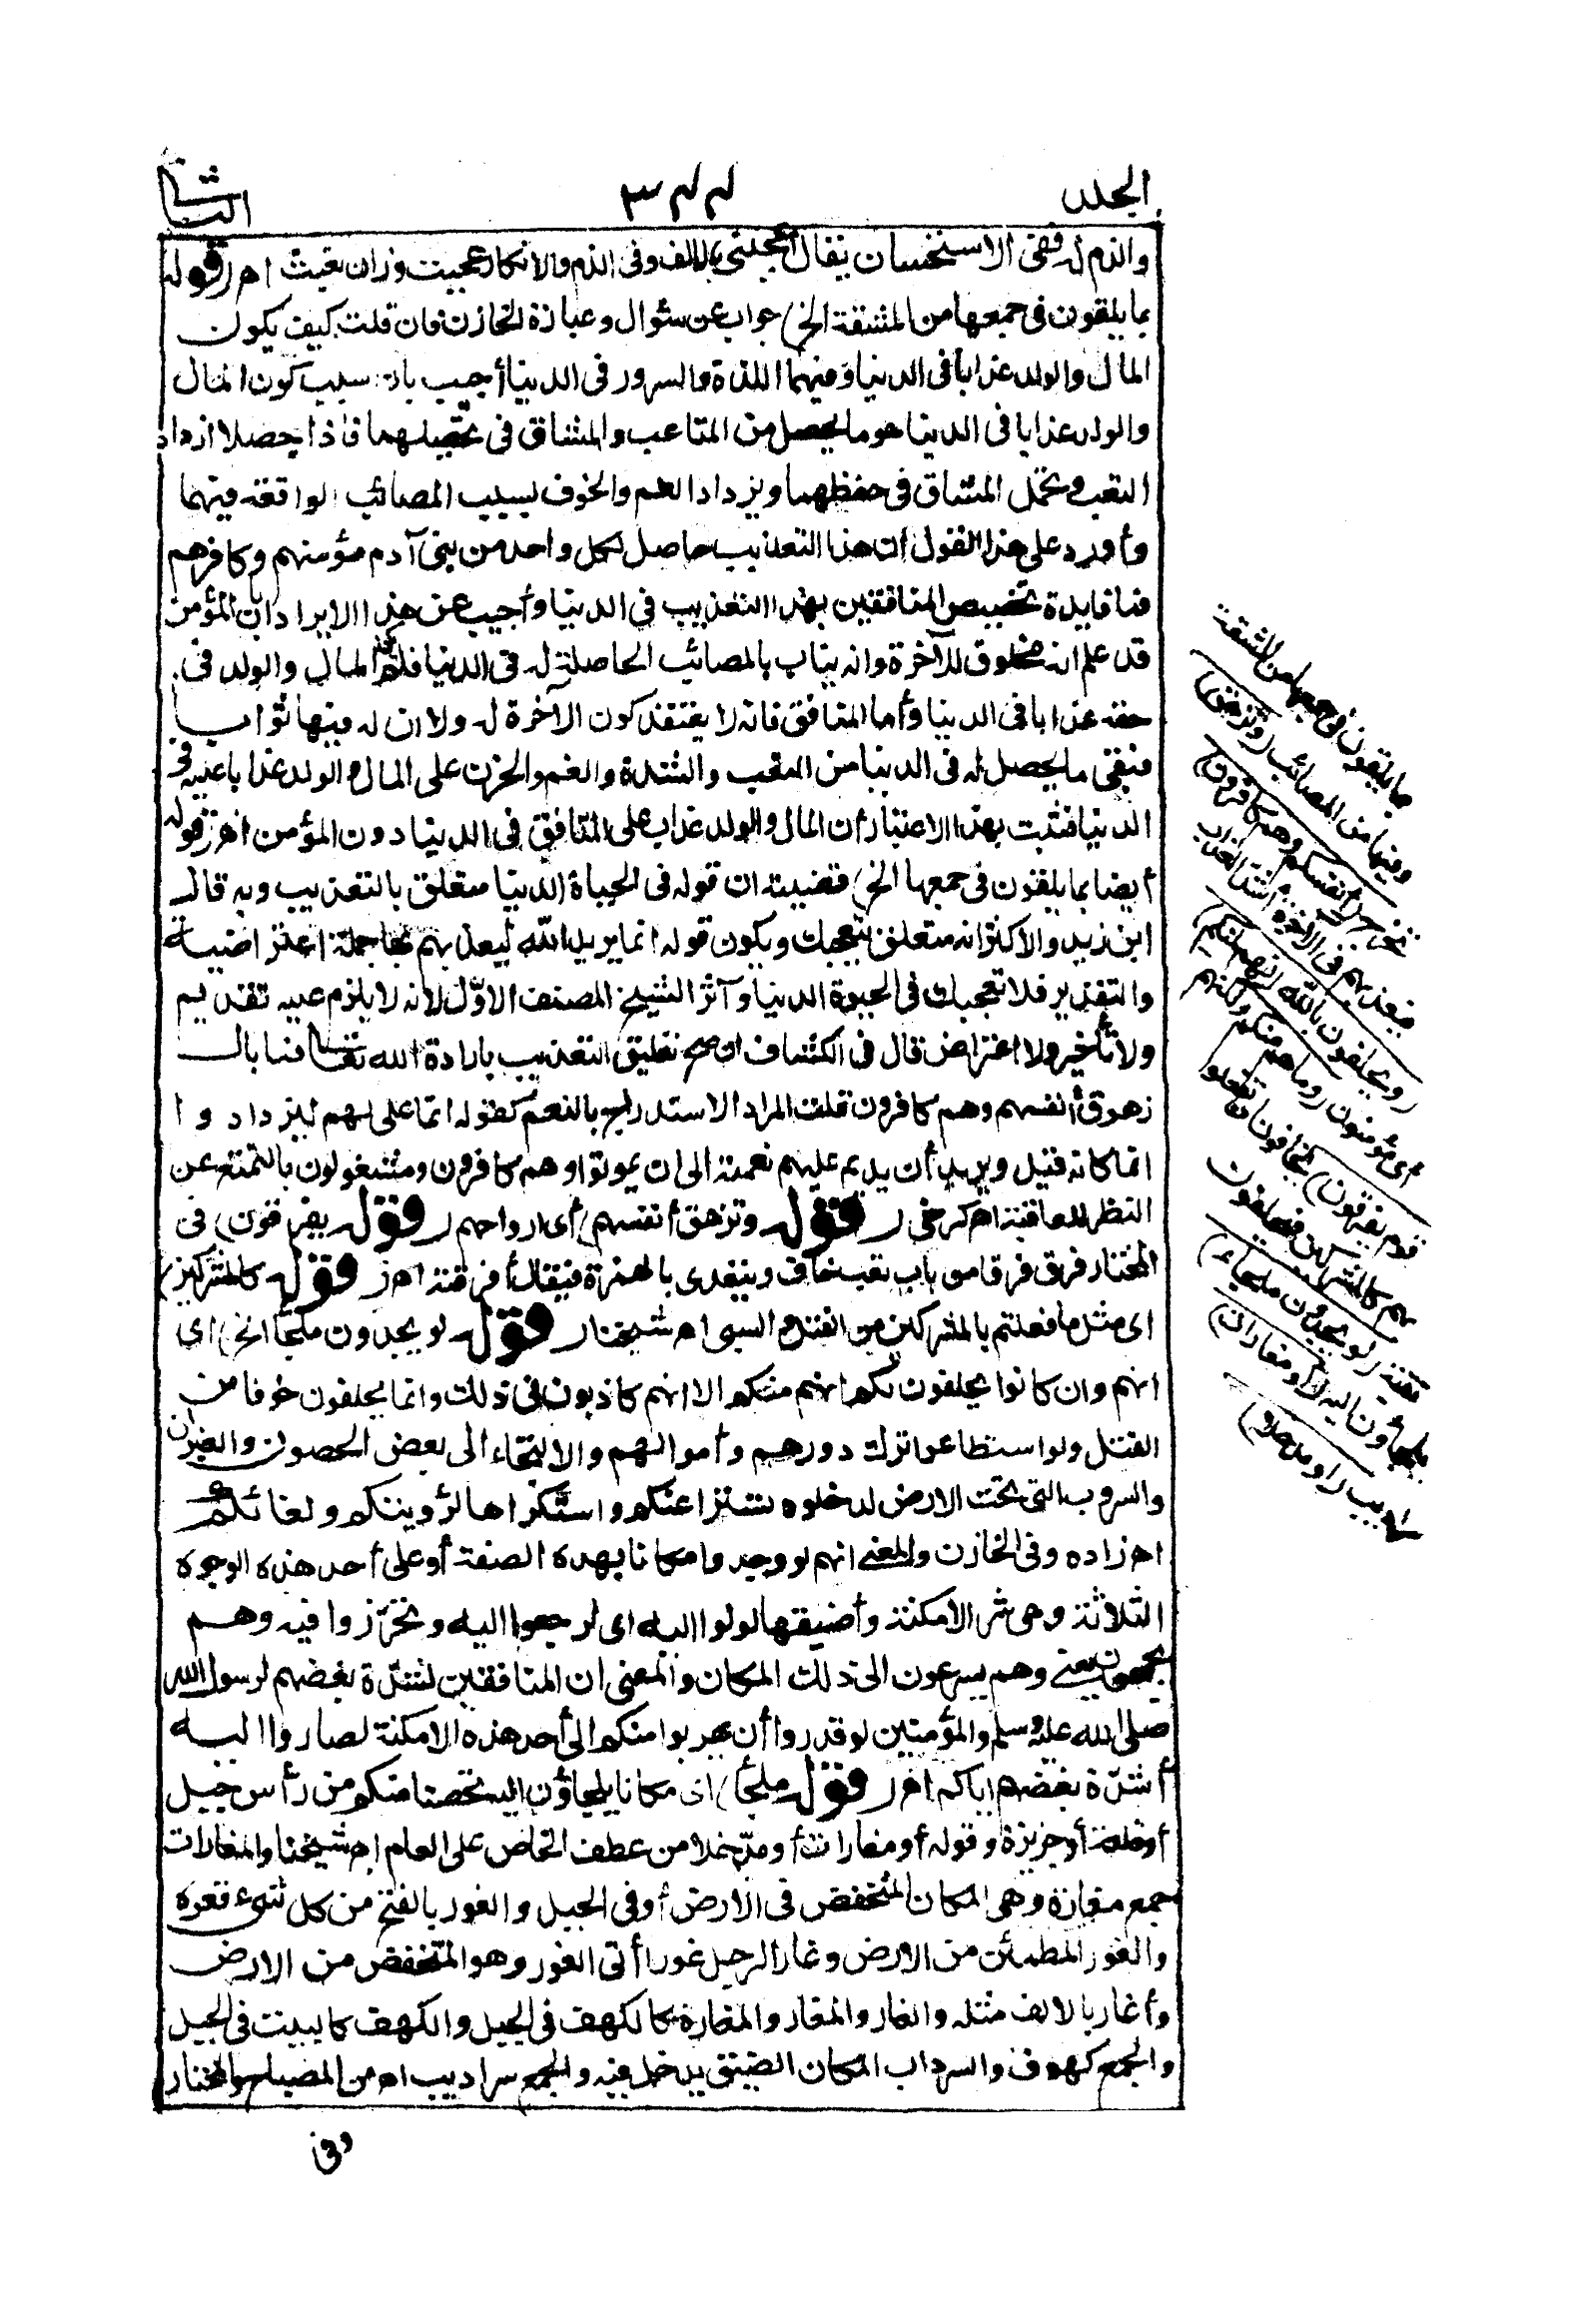 الجلد
٣٤٤
الثانى
والذم له ففى الاستحسان يقال أعجبنى بالالف وفى الذم والانكار عجبت وزان تعبت اهـ ز قوله
بما يلقون فى جمعها من المشقة الخ) جواب عن سؤال وعبارة الخازن فان قلت كيف يكون
المال والولد عذابا فى الدنيا وفيهما اللذة والسرور فى الدنيا أجيب بان سبب كون المال
والولد عذابا فى الدنيا هو ما يحصل من المتاعب والمشاق فى تحصيلهما فاذا حصلا ازداد
التعب وتحمل المشاق فى حفظهما ويزداد الغم والخوف بسبب المصائب الواقعة فيهما
وأورد على هذا القول ان هذا التعذيب حاصل لكل واحد من بنى آدم مؤمنهم وكافرهم
فما فايدة تخصيص المنافقين بهذا التعذيب فى الدنيا وأجيب عن هذا الايراد بان المؤمن
قد علم انه مخلوق للآخرة وانه يثاب بالمصائب الحاصلة له فى الدنيا فلم يكن المال والولد فى
حقه عذابا فى الدنيا وأما المنافق فانه لا يعتقد كون الآخرة له ولا ان له فيها ثواب
فبقى ما يحصل له فى الدنيا من التعب والشدة والغم والحزن على المال والولد عذابا عليه فى
الدنيا فثبت بهذا الاعتبار أن المال والولد عذاب على المنافق فى الدنيا دون المؤمن اهـ ز قوله
أيضا بما يلقون فى جمعها الخ) قضيته ان قوله فى الحياة الدنيا متعلق بالتعذيب وبه قال
ابن زيد والاكثر انه متعلق بتعجبك ويكون قوله انما يريد الله ليعذبهم بها جملة اعتراضية
والتقدير فلا تعجبك فى الحيوة الدنيا وآثر الشيخ المصنف الاوّل لانه لا يلزم عليه تقديم
ولا تأخير ولا اعتراض قال فى الكشاف ان صح تعليق التعذيب بارادة الله تعالى فما بال
زهوق أنفسهم وهم كافرون قلت المراد الاستدراج بالنعم كقوله انما نملى لهم ليزدادوا
اثما كانه قيل ويريد أن يديم عليهم نعمته الى ان يموتوا وهم كافرون ومشغولون بالتمتع عن
النظر للعاقبة اهـ كرخى ر قوله وتزهق أنفسهم) أى ارواحهم ر قوله يفرقون) فى
المختار فرق فرقا من باب تعب خاف ويتعدى بالهمزة فيقال أفرقته اهـ ز قوله كالمشركين)
اى مثل ما فعلتم بالمشركين من القتل والسبى اهـ شيخنا ر قوله لو يجدون ملجأ الخ) اى
انهم وان كانوا يحلفون لكم انهم منكم الا انهم كاذبون فى ذلك وانما يحلفون خوفا من
القتل ولو استطاعوا ترك دورهم وأموالهم والالتجاء الى بعض الحصون والغيران
والسروب التى تحت الارض لدخلوه تسترا عنكم واستكراها لرؤيتكم ولقائكم
اهـ زاده وفى الخازن والمعنى انهم لو وجدوا مكانا بهذه الصفة أو على أحد هذه الوجوه
الثلاثة وهى شر الامكنة وأضيقها لولوا اليه اى لرجعوا اليه وتحرّزوا فيه وهم
يجمحون يعنى وهم يسرعون الى ذلك المكان والمعنى ان المنافقين لشدّة بغضهم لرسول الله
صلى الله عليه وسلم والمؤمنين لو قدروا أن يهربوا منكم الى أحد هذه الامكنة لصاروا اليه
لشدّة بغضهم اياكم اهـ ر قوله ملجأ) اى مكانا يلجاؤن اليه تحصنا منكم من رأس جبل
أو قلعة أو جزيرة وقوله أو مغارات أو مدّخلا من عطف الخاص على العام اهـ شيخنا والمغارات
جمع مغارة وهى المكان المنخفض فى الارض أو فى الجبل والغور بالفتح من كل شىء قعره
والغور المطمئن من الارض وغار الرجل غورا أتى الغور وهو المنخفض من الارض
وأغار بالالف مثله والغار والمغار والمغارة كالكهف فى الجبل والكهف كالبيت فى الجبل
والجمع كهوف والسرداب المكان الضيق يدخل فيه والجمع سراديب اهـ من المصباح والمختار
وفى
بما يلقون فى جمعها من المشقة
وفيها من المصائب (وتزهق)
تخرج (أنفسهم وهم كافرون)
فيعذبهم فى الآخرة أشد العذاب
(ويحلفون بالله انهم لمنكم)
أى مؤمنون (وما هم منكم ولكنهم
قوم يفرقون) يخافون ان تفعلوا
بهم كالمشركين فيحلفون
تقية (لو يجدون ملجاء)
يلجاؤن اليه (أو مغارات)
سراديب (او مدخلا)